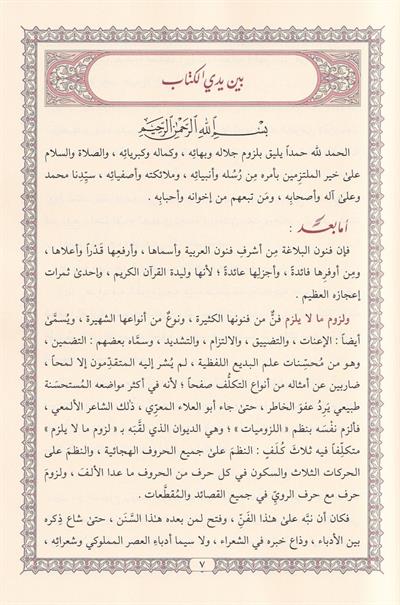 بين يدي الكتاب
بِسْمِ اللهِ الرَّحْمَنِ الرَّحِيمِ
الحمد لله حمداً يليق بلزوم جلاله وبهائِه ، وكماله وكبريائِه ، والصلاة والسلام
علىٰ خير الملتزِمين بأمره مِن رُسُله وأنبيائِه ، وملائكته وأصفيائِه ، سيِّدِنا محمد
وعلىٰ آله وأصحابِه ، ومَن تبعهم من إخوانه وأحبابِه .
أما بعد :
فإن فنون البلاغة مِن أشرفِ فنون العربية وأسماها ، وأرفعِها قَدْراً وأعلاها ،
ومِن أوفرِها فائدةً ، وأجزلِها عائدةً ؛ لأنها وليدة القرآن الكريم ، وإحدىٰ ثمرات
إعجازه العظيم .
ولزوم ما لا يلزم فنٌّ من فنونها الكثيرة ، ونوعٌ من أنواعها الشهيرة ، ويُسمَّىٰ
أيضاً : الإعنات ، والتضييق ، والالتزام ، والتشديد ، وسمَّاه بعضهم : التضمين ،
وهو من مُحسِّنات علم البديع اللفظية ، لم يُشر إليه المتقدِّمون إلا لمحاً ،
ضاربين عن أمثاله من أنواع التكلُّف صفحاً ؛ لأنه في أكثر مواضعه المُستحسَنة
طبيعي يَرِدُ عفوَ الخاطر ، حتىٰ جاء أبو العلاء المعرِّي ، ذٰلك الشاعر الألمعي ،
فألزم نفْسَه بنظم « اللزوميات » ؛ وهي الديوان الذي لقَّبَه بـ « لزوم ما لا يلزم »
متكلِّفاً فيه ثلاثَ كُلَفٍ : النظمَ علىٰ جميع الحروف الهجائية ، والنظمَ على
الحركات الثلاث والسكون في كل حرف من الحروف ما عدا الألفَ ، ولزومَ
حرف مع حرف الرويِّ في جميع القصائد والمُقطَّعات .
فكان أن نبَّه علىٰ هٰذا الفَنِّ ، وفتح لمن بعده هٰذا السَّنَن ، حتىٰ شاع ذِكره
بين الأدباء ، وذاع خبره في الشعراء ، ولا سيما أدباءِ العصر المملوكي وشعرائِه ،
٧